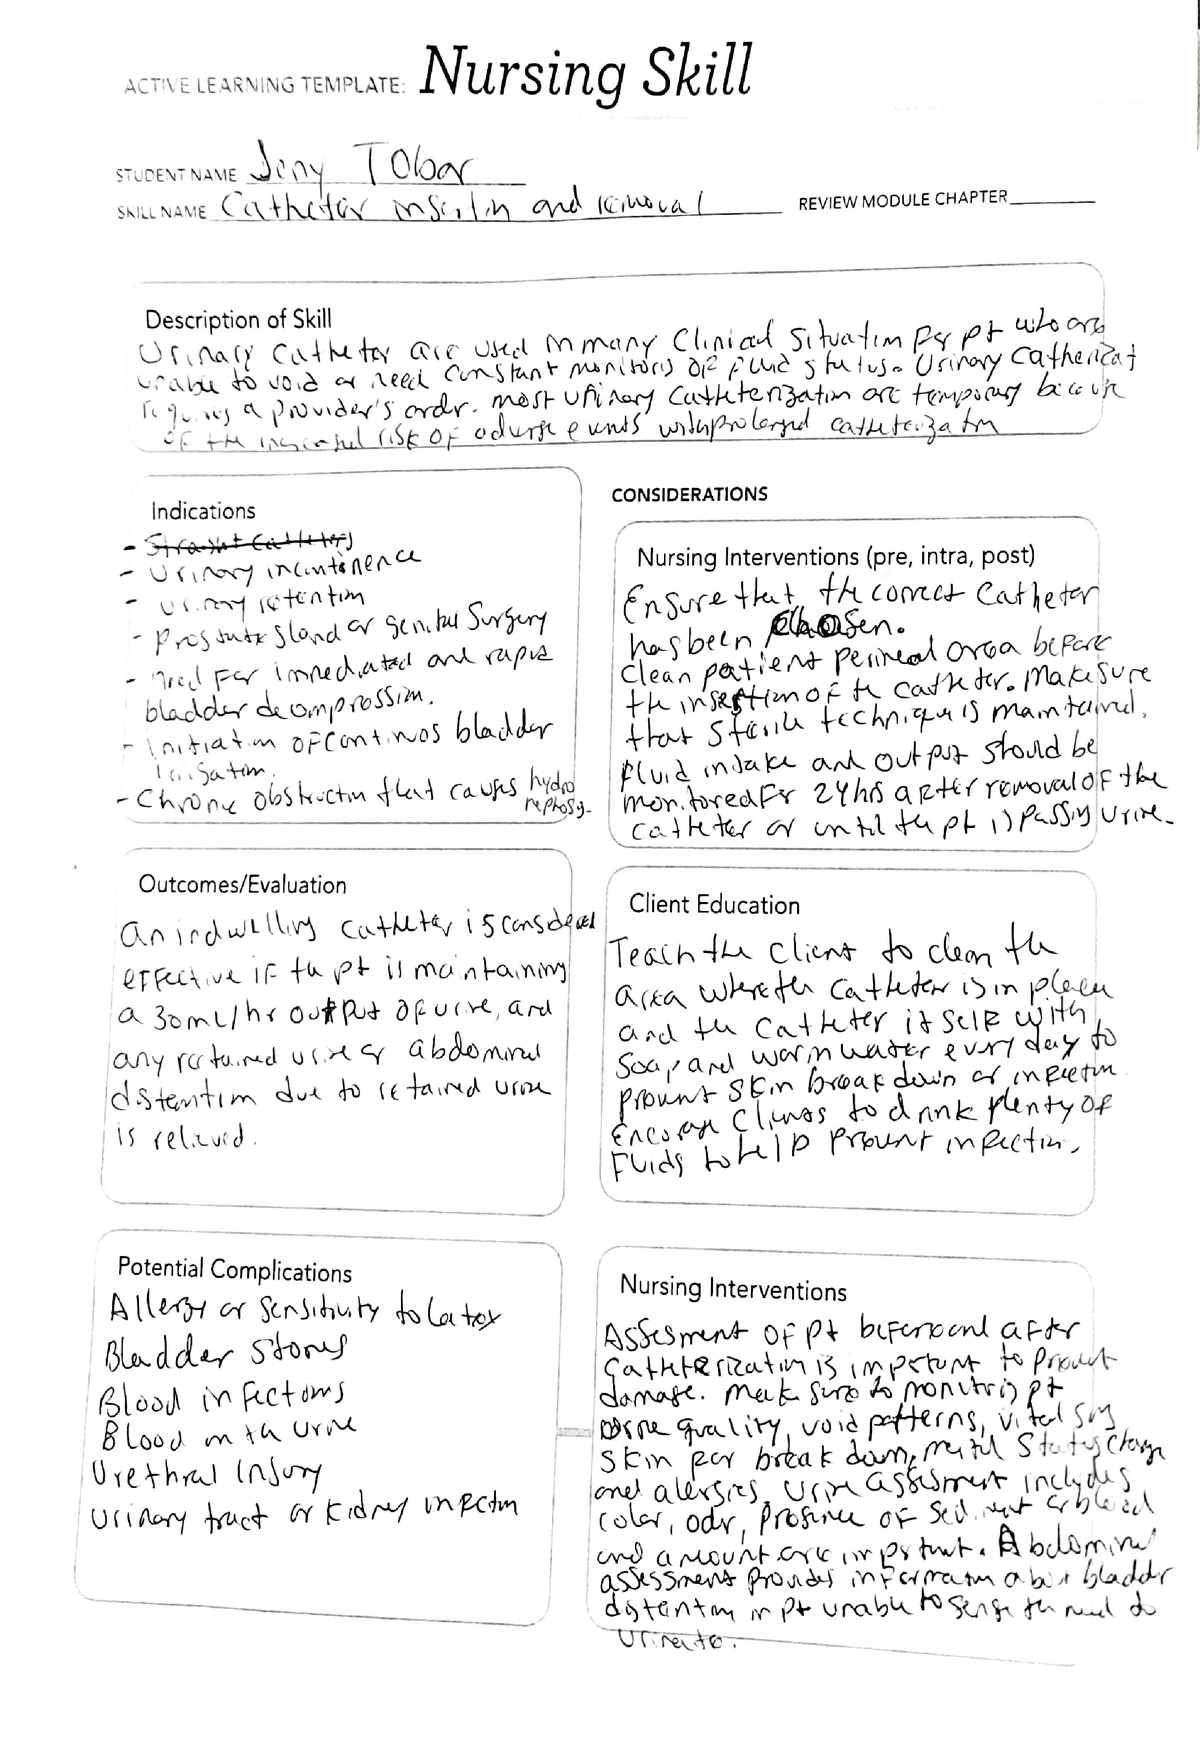 ACTIVE LEARNING TEMPLATE: Nursing Skill
STUDENT NAME Jeny TObar
SKILL NAME Catheter and removal
REVIEW MODULE CHAPTER
Description of Skill
Urinary Catheter are used in many Clinical Situation per pt who are
unable to void or need constant of fluid status. Urinary
requires a provider's order. most urinary Catheterization are temporary because
of the risk of adverse events with prolonged
Indications
- Urinary incontinence
- Urinary retention
- Prostate gland or genital Surgery
- need for and rapid
bladder decompression.
- initiation of continuos bladder
irrigation.
- Chronic obstruction that causes hydro
CONSIDERATIONS
Nursing Interventions (pre, intra, post)
Ensure that the correct Catheter
has been Chosen.
Clean patient perineal area before
the insertion of the catheter. Make sure
that sterile technique is maintained.
fluid intake and output should be
monitored for 24hrs after removal of the
catheter or until the pt is passing urine.
Outcomes/Evaluation
An indwelling catheter is considered
effective if the pt is maintaining
a 30mL/hr output of urine, and
any retained urine or abdominal
distention due to retained urine
is relieved.
Client Education
Teach the Client to clean the
area where the catheter is in place
and the catheter itself with
Soap and warm water every day to
prevent skin breakdown or infection.
Encorage Clients to drink plenty of
fluids to help prevent infection.
Potential Complications
Allergy or sensitivity to latex
Bladder stones
Blood infections
Blood in the urine
Urethral Injury
Urinary tract or kidney infection
Nursing Interventions
Assesment of pt before and after
Catheterization is important to prevent
damage. Make sure to pt
urine quality, void patterns, vital
Skin for break down, mental status change
and alergies. Urine assesment includes
color, odr, presence of sediment or blood
and amount are important. Abdominal
assessment provides information about bladder
distention in pt unable to sense the need to
urinate.